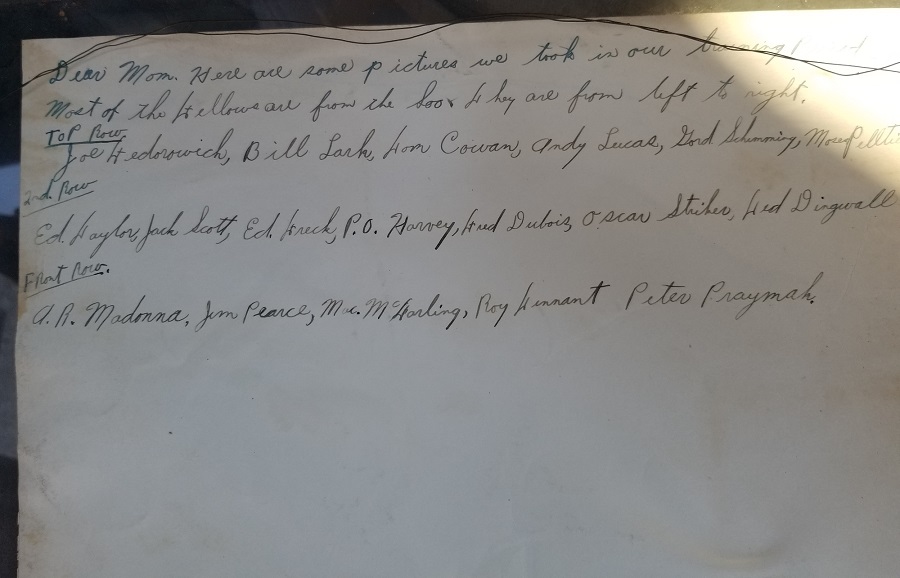 Dear Mom. Here are some pictures we took in our training
Most of the fellows are from the Soo. They are from left to right.
Top Row.
Joe Fedorowich, Bill Lark, Tom Cowan, Andy Lucas, Gord Schimoning, Mose
2nd. Row
Ed. Taylor, Jack Scott, Ed. Treck, P.O. Harvey, Fred Dubois, Oscar Striker, Ted Dingwall
Front Row.
A.R. Madonna, Jim Pearce, Mac. McFarling, Roy Tennant Peter Praymak.